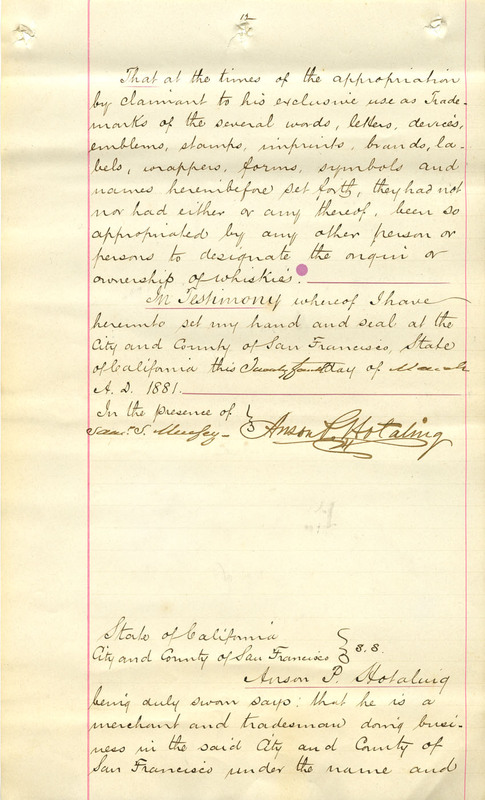 12
That at the times of the appropriation
by claimant to his exclusive use as Trade-
marks of the several words, letters, devices,
emblems, stamps, imprints, brands, la-
bels, wrappers, forms, symbols and
names hereinbefore set forth, they had not
nor had either or any thereof, been so
appropriated by any other person or
persons to designate the origin or
ownership of whiskies.
In Testimony whereof I have
hereunto set my hand and seal at the
City and County of San Francisco, State
of California this Twenty fourth day of March
A. D. 1881.
In the presence of
Saml. S. Murfey Anson P. Hotaling
State of California
City and County of San Francisco } S.S.
Anson P. Hotaling
being duly sworn says: that he is a
merchant and tradesman doing busi-
ness in the said City and County of
San Francisco under the name and